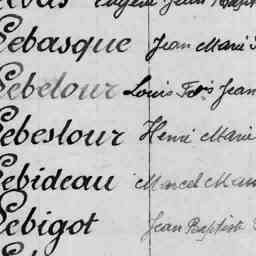 Eugène Jean Bapt
Lebasque Jean Marie
Lebelour Louis Fois Jean
Lebeslour Henri Marie
Lebideau Marcel Mar
Lebigot Jean Baptiste